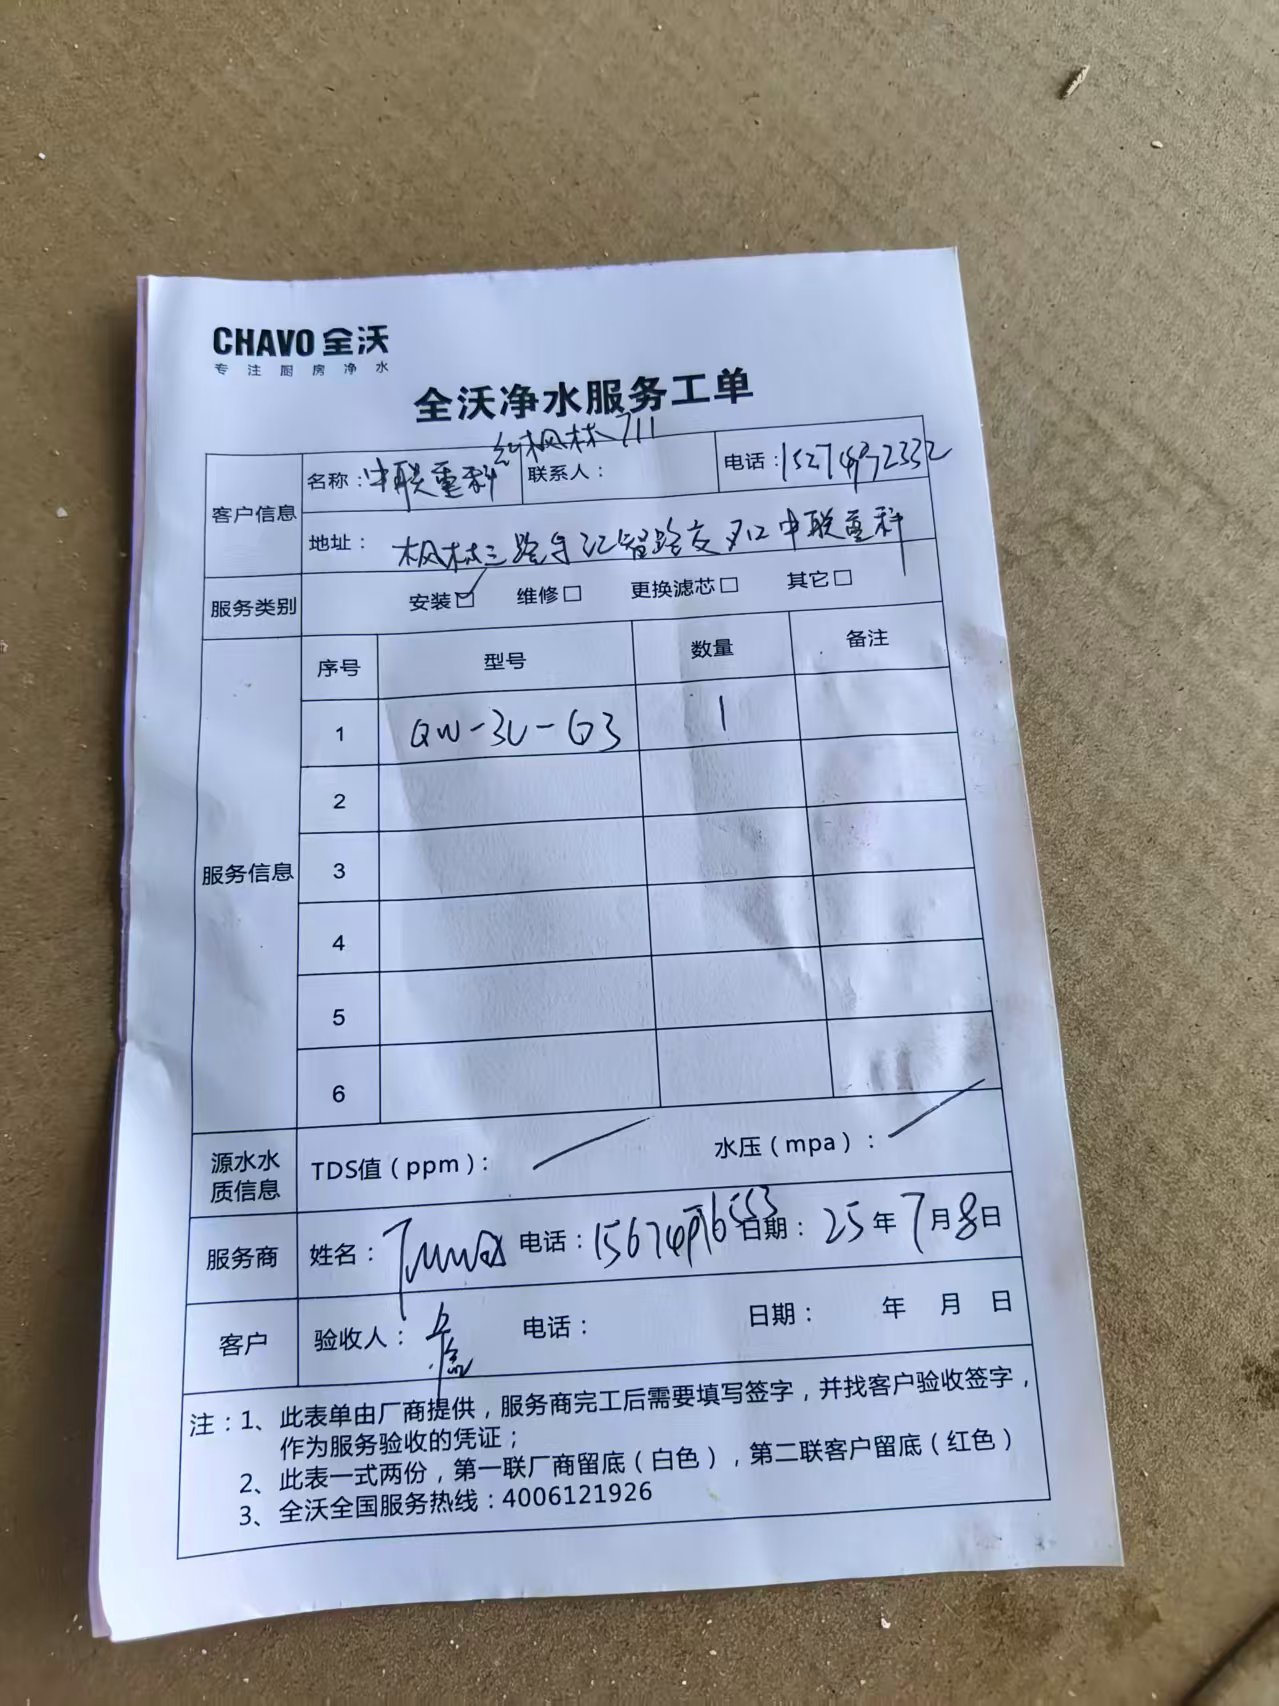 CHAVO 全沃
专注厨房净水
全沃净水服务工单
红枫林711
客户信息 名称：中联重科 联系人： 电话：15274972332
地址：枫林三路与汇智路交叉口中联重科
服务类别 安装☑ 维修□ 更换滤芯□ 其它□
服务信息 序号 型号 数量 备注
1 QW-3U-G3 1
2
3
4
5
6
源水水质信息 TDS值（ppm）： 水压（mpa）：
服务商 姓名： 电话： 日期：25年7月8日
客户 验收人： 电话： 日期： 年 月 日
注：1、此表单由厂商提供，服务商完工后需要填写签字，并找客户验收签字，
作为服务验收的凭证；
2、此表一式两份，第一联厂商留底（白色），第二联客户留底（红色）
3、全沃全国服务热线：4006121926